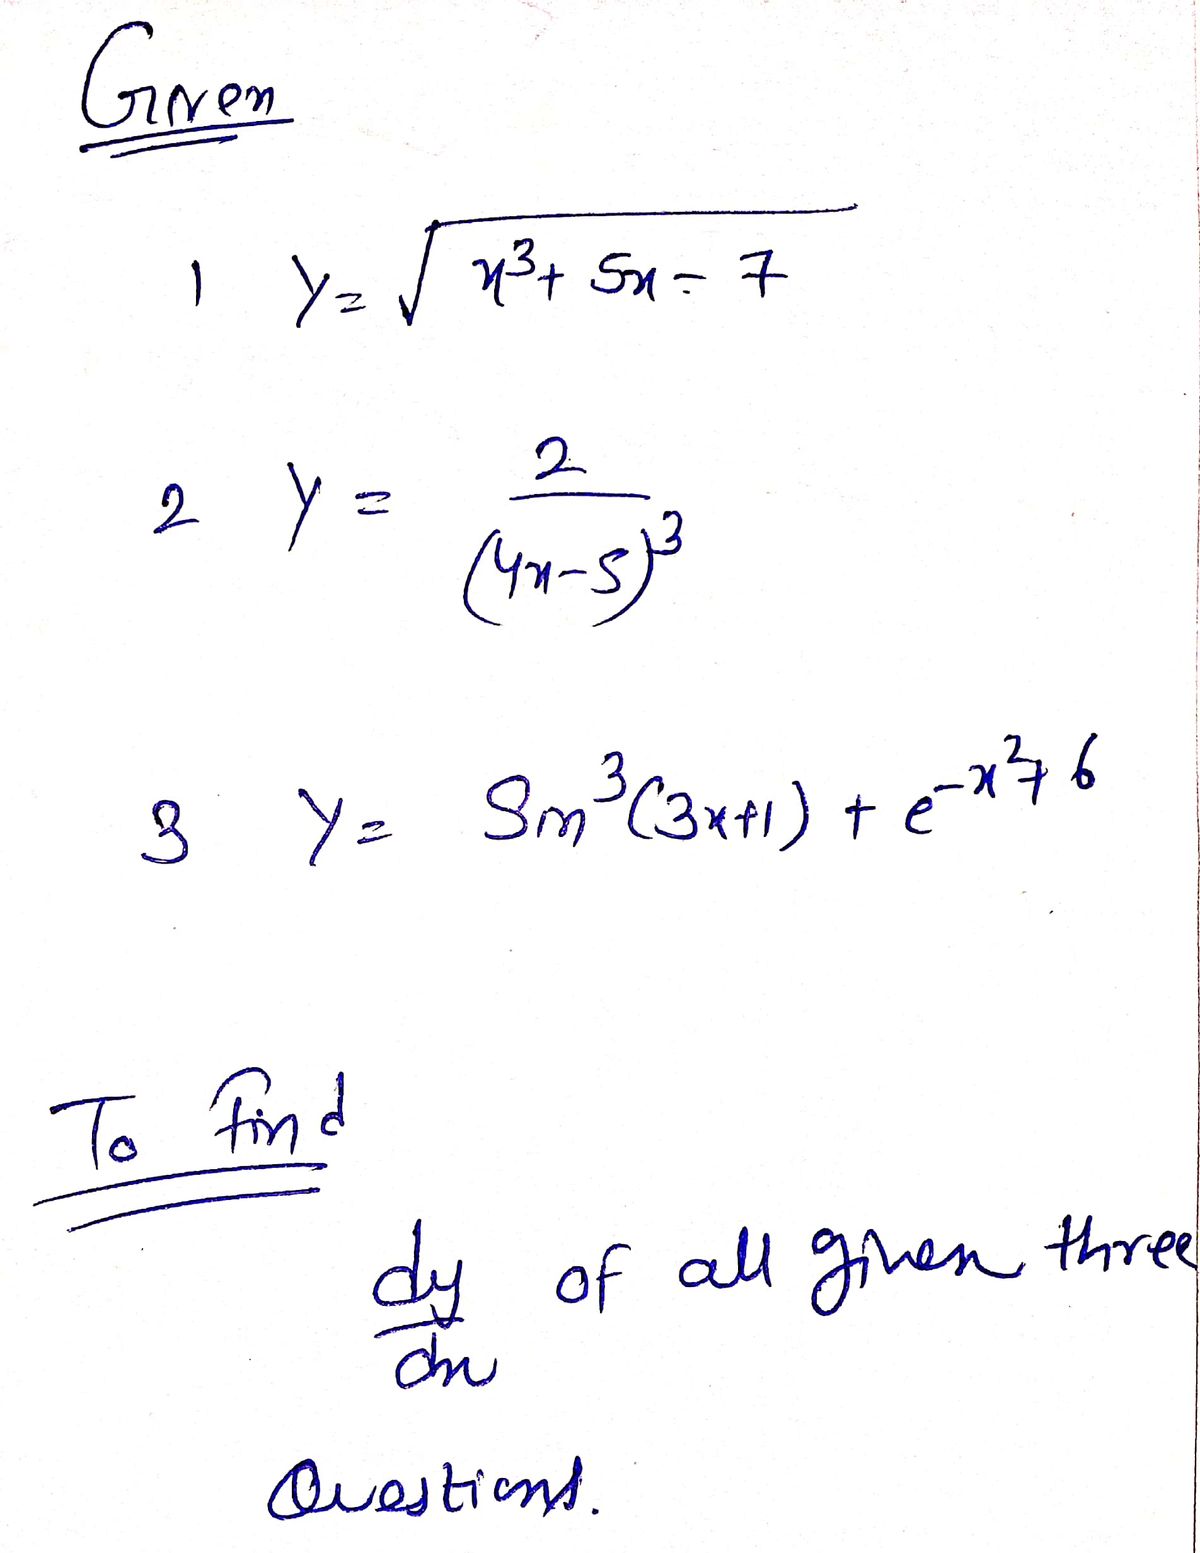 Given
1 y = √x³ + 5x - 7
2 y = 2/(4x-5)³
3 y = Sin³(3x+1) + e^-x²+6
To find
dy/dx of all given three
Questions.